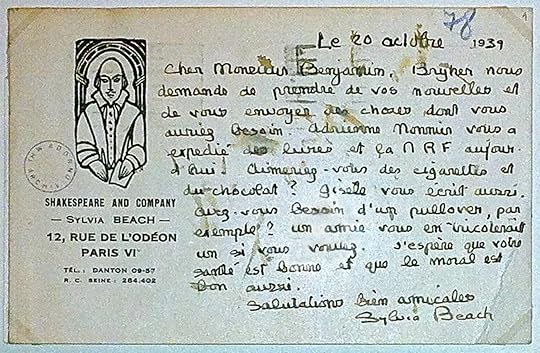 78
Le 20 octobre 1939
Cher Monsieur Benjamin, Bryher nous
demande de prendre de vos nouvelles et
de vous envoyer des choses dont vous
auriez besoin. Adrienne Monnier vous a
expedié des livres et la NRF aujour-
d'hui. Aimeriez-vous des cigarettes et
du chocolat? Giselle vous écrit aussi.
Avez-vous besoin d'un pullover, par
exemple? un amie vous en tricoterait
un si vous voulez. J'espère que votre
santé est bonne et que le moral est
bon aussi.
Salutations bien amicales
Sylvia Beach
SHAKESPEARE AND COMPANY
— SYLVIA BEACH —
12, RUE DE L'ODÉON
PARIS VI
TÉL.: DANTON 09-57
R. C. SEINE: 284.402